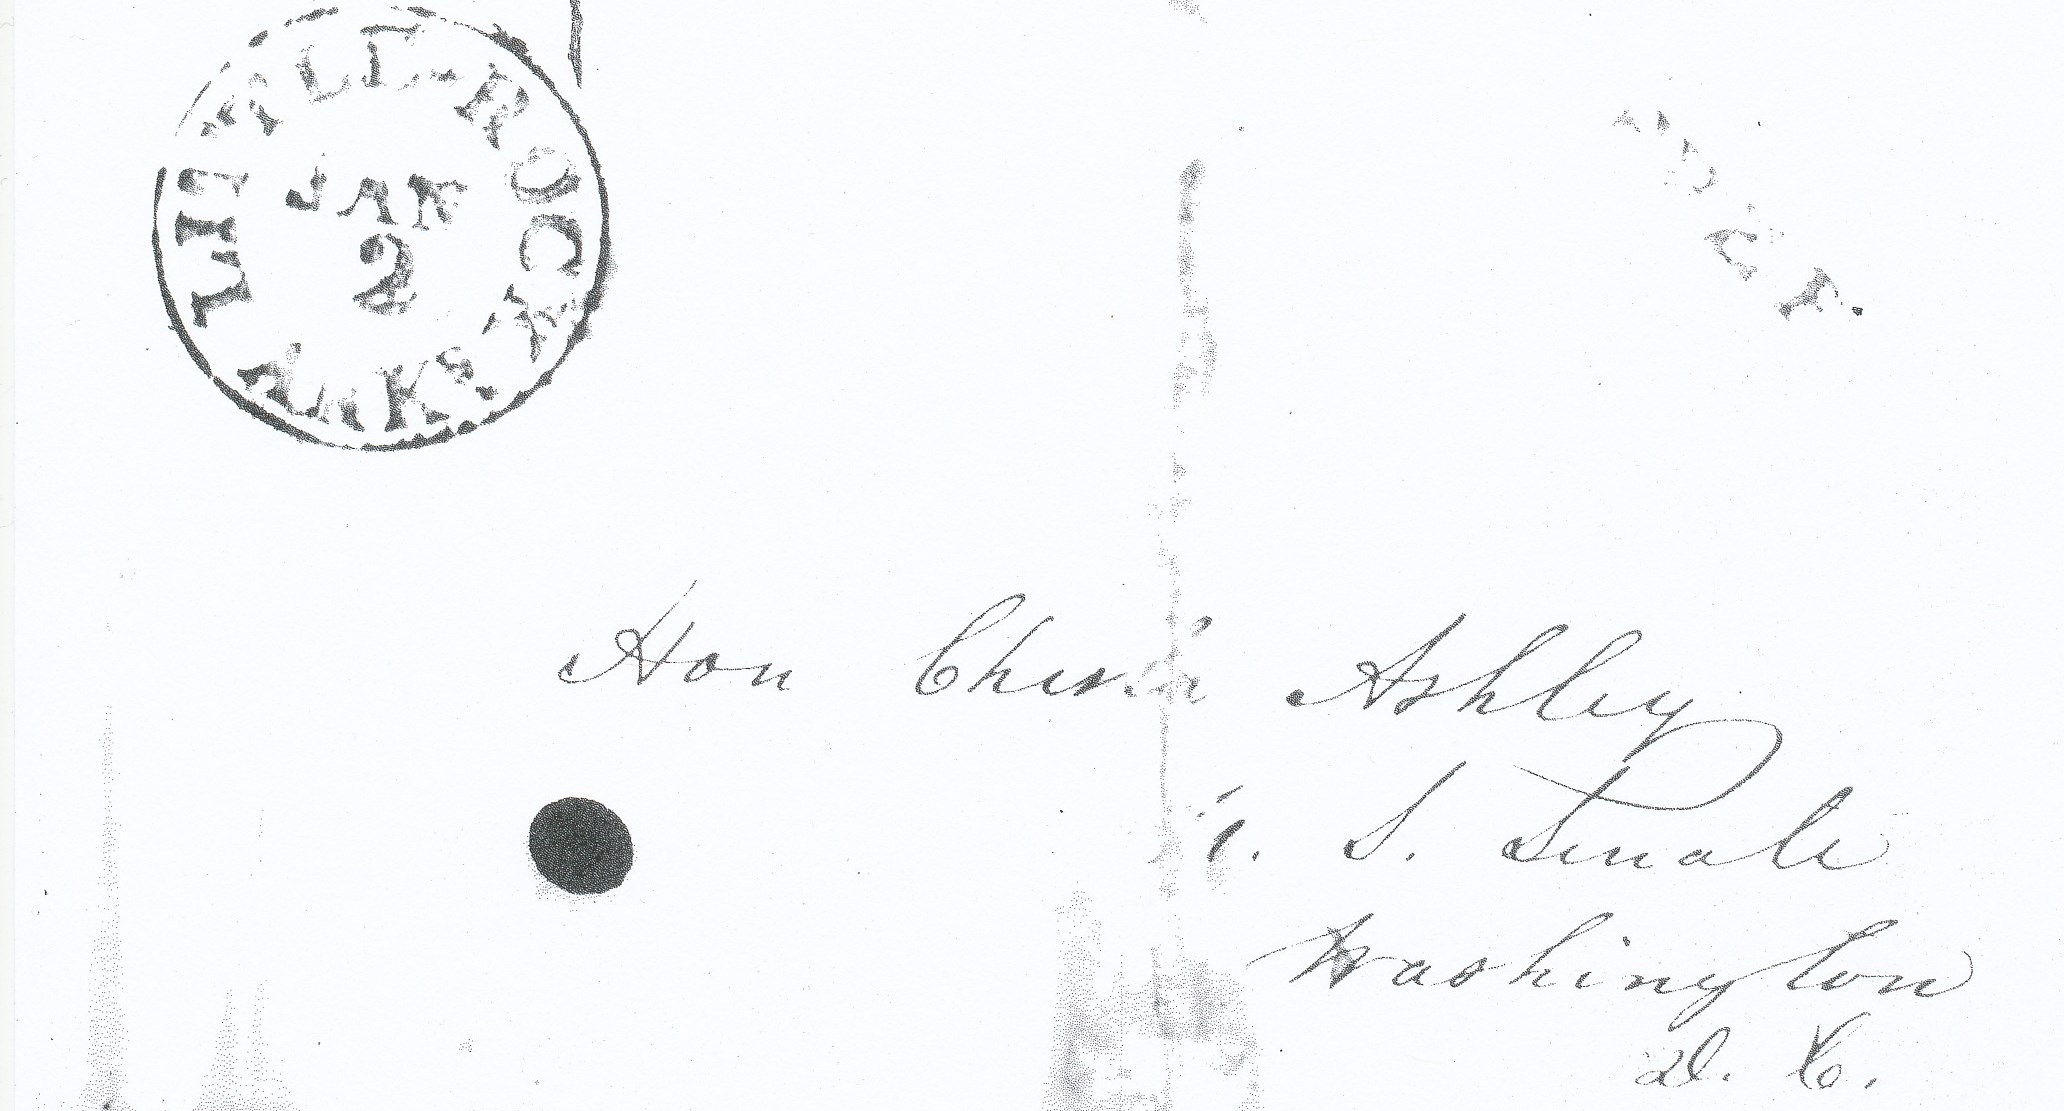 LITTLE-ROCK
JAN
2
ARKS.
Hon Chester Ashley
U. S. Senate
Washington
D. C.